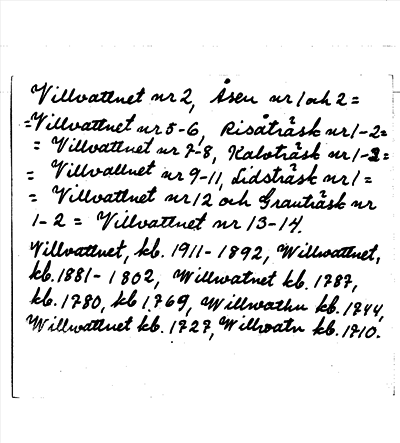 Villvattnet nr 2, Åsen nr 1 och 2 =
= Villvattnet nr 5-6, Risåträsk nr 1-2 =
= Villvattnet nr 7-8, Kaloträsk nr 1-2 =
= Villvattnet nr 9-11, Lidsträsk nr 1 =
= Villvattnet nr 12 och Granträsk nr
1-2 = Villvattnet nr 13-14.
Villvattnet, kb. 1911-1892, Willwattnet,
kb. 1881-1802, Willwatnet kb. 1787,
kb. 1780, kb 1769, Willwathn kb. 1744,
Willwattnet kb. 1727, Willwatn kb. 1710.